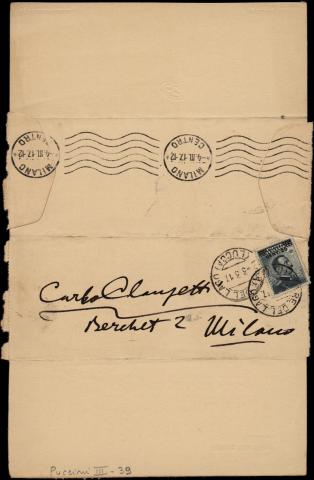 MILANO
CENTRO
4.III.17.12
MILANO
CENTRO
4.III.17.12
(LUCCA)
3.3.17
Carlo Clausetti
Berchet 2 Milano
Puccini III - 39